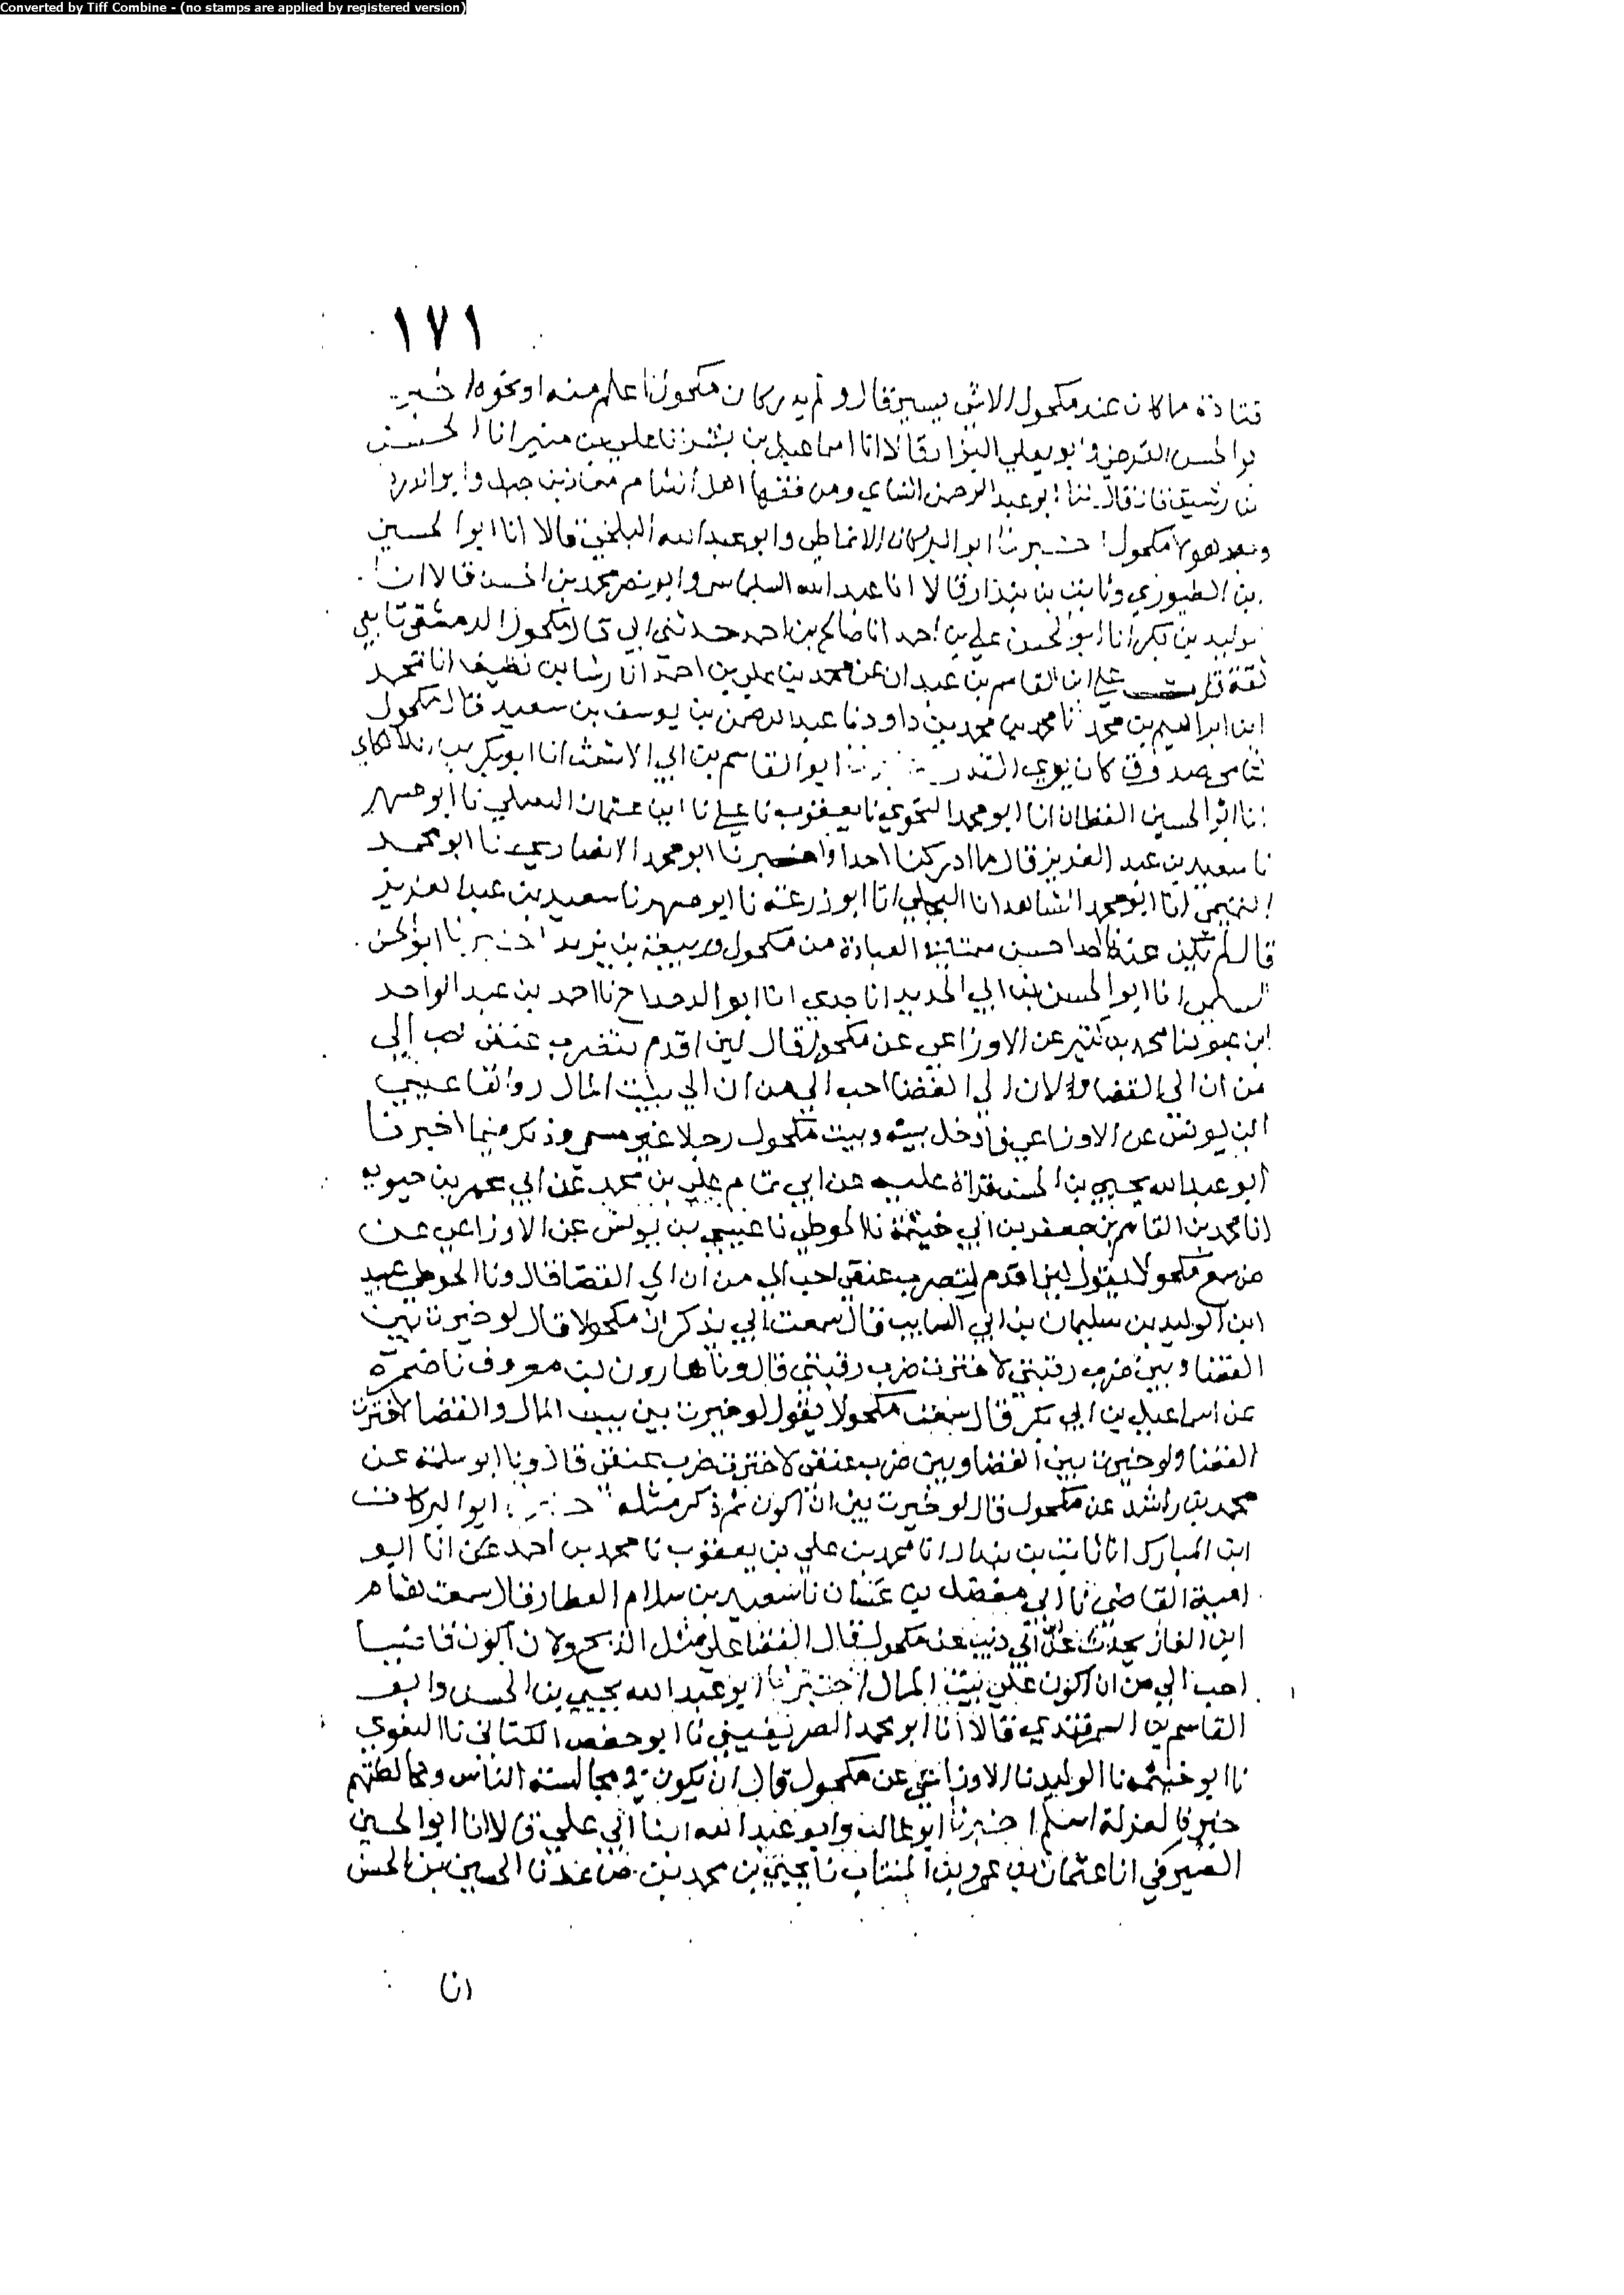 Converted by Tiff Combine - (no stamps are applied by registered version)
١٧١
قتادة ما كان عند مكحول الا شي يسير قال ولم يدر كان مكحول اعلم منه او نحوه اخبرنا
بو الحسن الفرضي وابو يعلي البزاز قالا انا اسماعيل بن بشر نا علي بن منير انا الحسن
بن رشيق قال ثنا ابو عبد الرحمن النساي ومن فقها اهل الشام معاذ بن جبل وابو الدردا
وبعد هولا مكحول اخبرنا ابو البركات الانماطي وابو عبد الله البلخي قالا انا ابو الحسين
بن الطيوري وثابت بن بندار قالا انا عبد الله السلماسي وابو نصر محمد بن الحسن قالا انا
لوليد بن بكر انا ابو الحسن علي بن احمد انا صالح بن احمد حدثني ابي قال مكحول الدمشقي تابعي
ثقة قرات علي ابي القاسم بن عبدان عن محمد بن علي بن احمد انا رشا بن نظيف انا محمد
ابن ابراهيم بن محمد نا محمد بن محمد بن داود نا عبد الرحمن بن يوسف بن سعيد قال مكحول
شامي صدوق كان يري القدر اخبرنا ابو القاسم بن ابي الاشعث انا ابو بكر بن اللالكاي
انا ابو الحسين القطان انا ابو محمد النحوي نا يعقوب نا علي نا ابن عثمان النفيلي نا ابو مسهر
نا سعيد بن عبد العزيز قال ما ادركنا احدا واخبرنا ابو محمد الانصاري نا ابو محمد
التميمي انا ابو محمد الشاهد انا البجلي انا ابو زرعة نا ابو مسهر نا سعيد بن عبد العزيز
قال لم يكن عندنا احدا حسن سمتا في العبادة من مكحول وربيعة بن يزيد اخبرنا ابو الحسن
السلمي انا ابو الحسن بن ابي الحديد انا جدي انا ابو الدحداح نا احمد بن عبد الواحد
ابن عبود نا محمد بن كثير عن الاوزاعي عن مكحول قال لين اقدم فتضرب عنقي احب الي
من ان الي القضا ولان الي القضا احب الي من ان الي بيت المال رواها عيسي
ابن يونس عن الاوزاعي فادخل بينه وبين مكحول رجلا غير مسمي وذكر منهما اخبرنا
ابو عبد الله يحيي بن الحسن قراة عليه عن ابي تمام علي بن محمد عن ابي عمر بن حيويه
انا محمد بن القاسم بن جعفر بن ابي خيثمة نا الحوطي نا عيسي بن يونس عن الاوزاعي عن
من سمع مكحولا يقول لين اقدم لتضرب عنقي احب الي من ان الي القضا قال ونا الحوطي عبد
ابن الوليد بن سليمان بن ابي السايب قال سمعت ابي يذكر ان مكحولا قال لو خيرت بين
القضا وبين ضرب رقبتي لاخترت ضرب رقبتي قال ونا هارون بن معروف نا ضمرة
عن اسماعيل بن ابي بكر قال سمعت مكحولا يقول لو خيرت بين بيت المال والقضا لاخترت
القضا ولو خيرت بين القضا وبين ضرب عنقي لاخترت ضرب عنقي قال ونا ابو سلمة عن
محمد بن راشد عن مكحول قال لو خيرت بين ان اكون ثم ذكر مثله اخبرنا ابو البركات
ابن المبارك انا ثابت بن بندار انا محمد بن علي بن يعقوب نا محمد بن احمد انا ابو
امية القاضي نا ابي مفضل بن غسان نا سعيد بن سلام العطار قال سمعت هشام
ابن الغاز يحدث عن ابي عن مكحول قال القضا علي مثل الذبح ولان اكون قاضيا
احب الي من ان اكون علي بيت المال اخبرنا ابو عبد الله يحيي بن الحسن وابو
القاسم بن السمرقندي قالا انا ابو محمد الصريفيني نا ابو حفص الكتاني نا البغوي
نا ابو خيثمه نا الوليد نا الاوزاعي عن مكحول قال ان يكون في مجالسة الناس ومخالطتهم
خير فالعزلة اسلم اخبرنا ابو غالب وابو عبد الله ابنا ابي علي قالا انا ابو الحسين
الصيرفي انا عثمان بن عمرو بن المنتاب نا يحيي بن محمد بن صاعد نا الحسين بن الحسن
انا